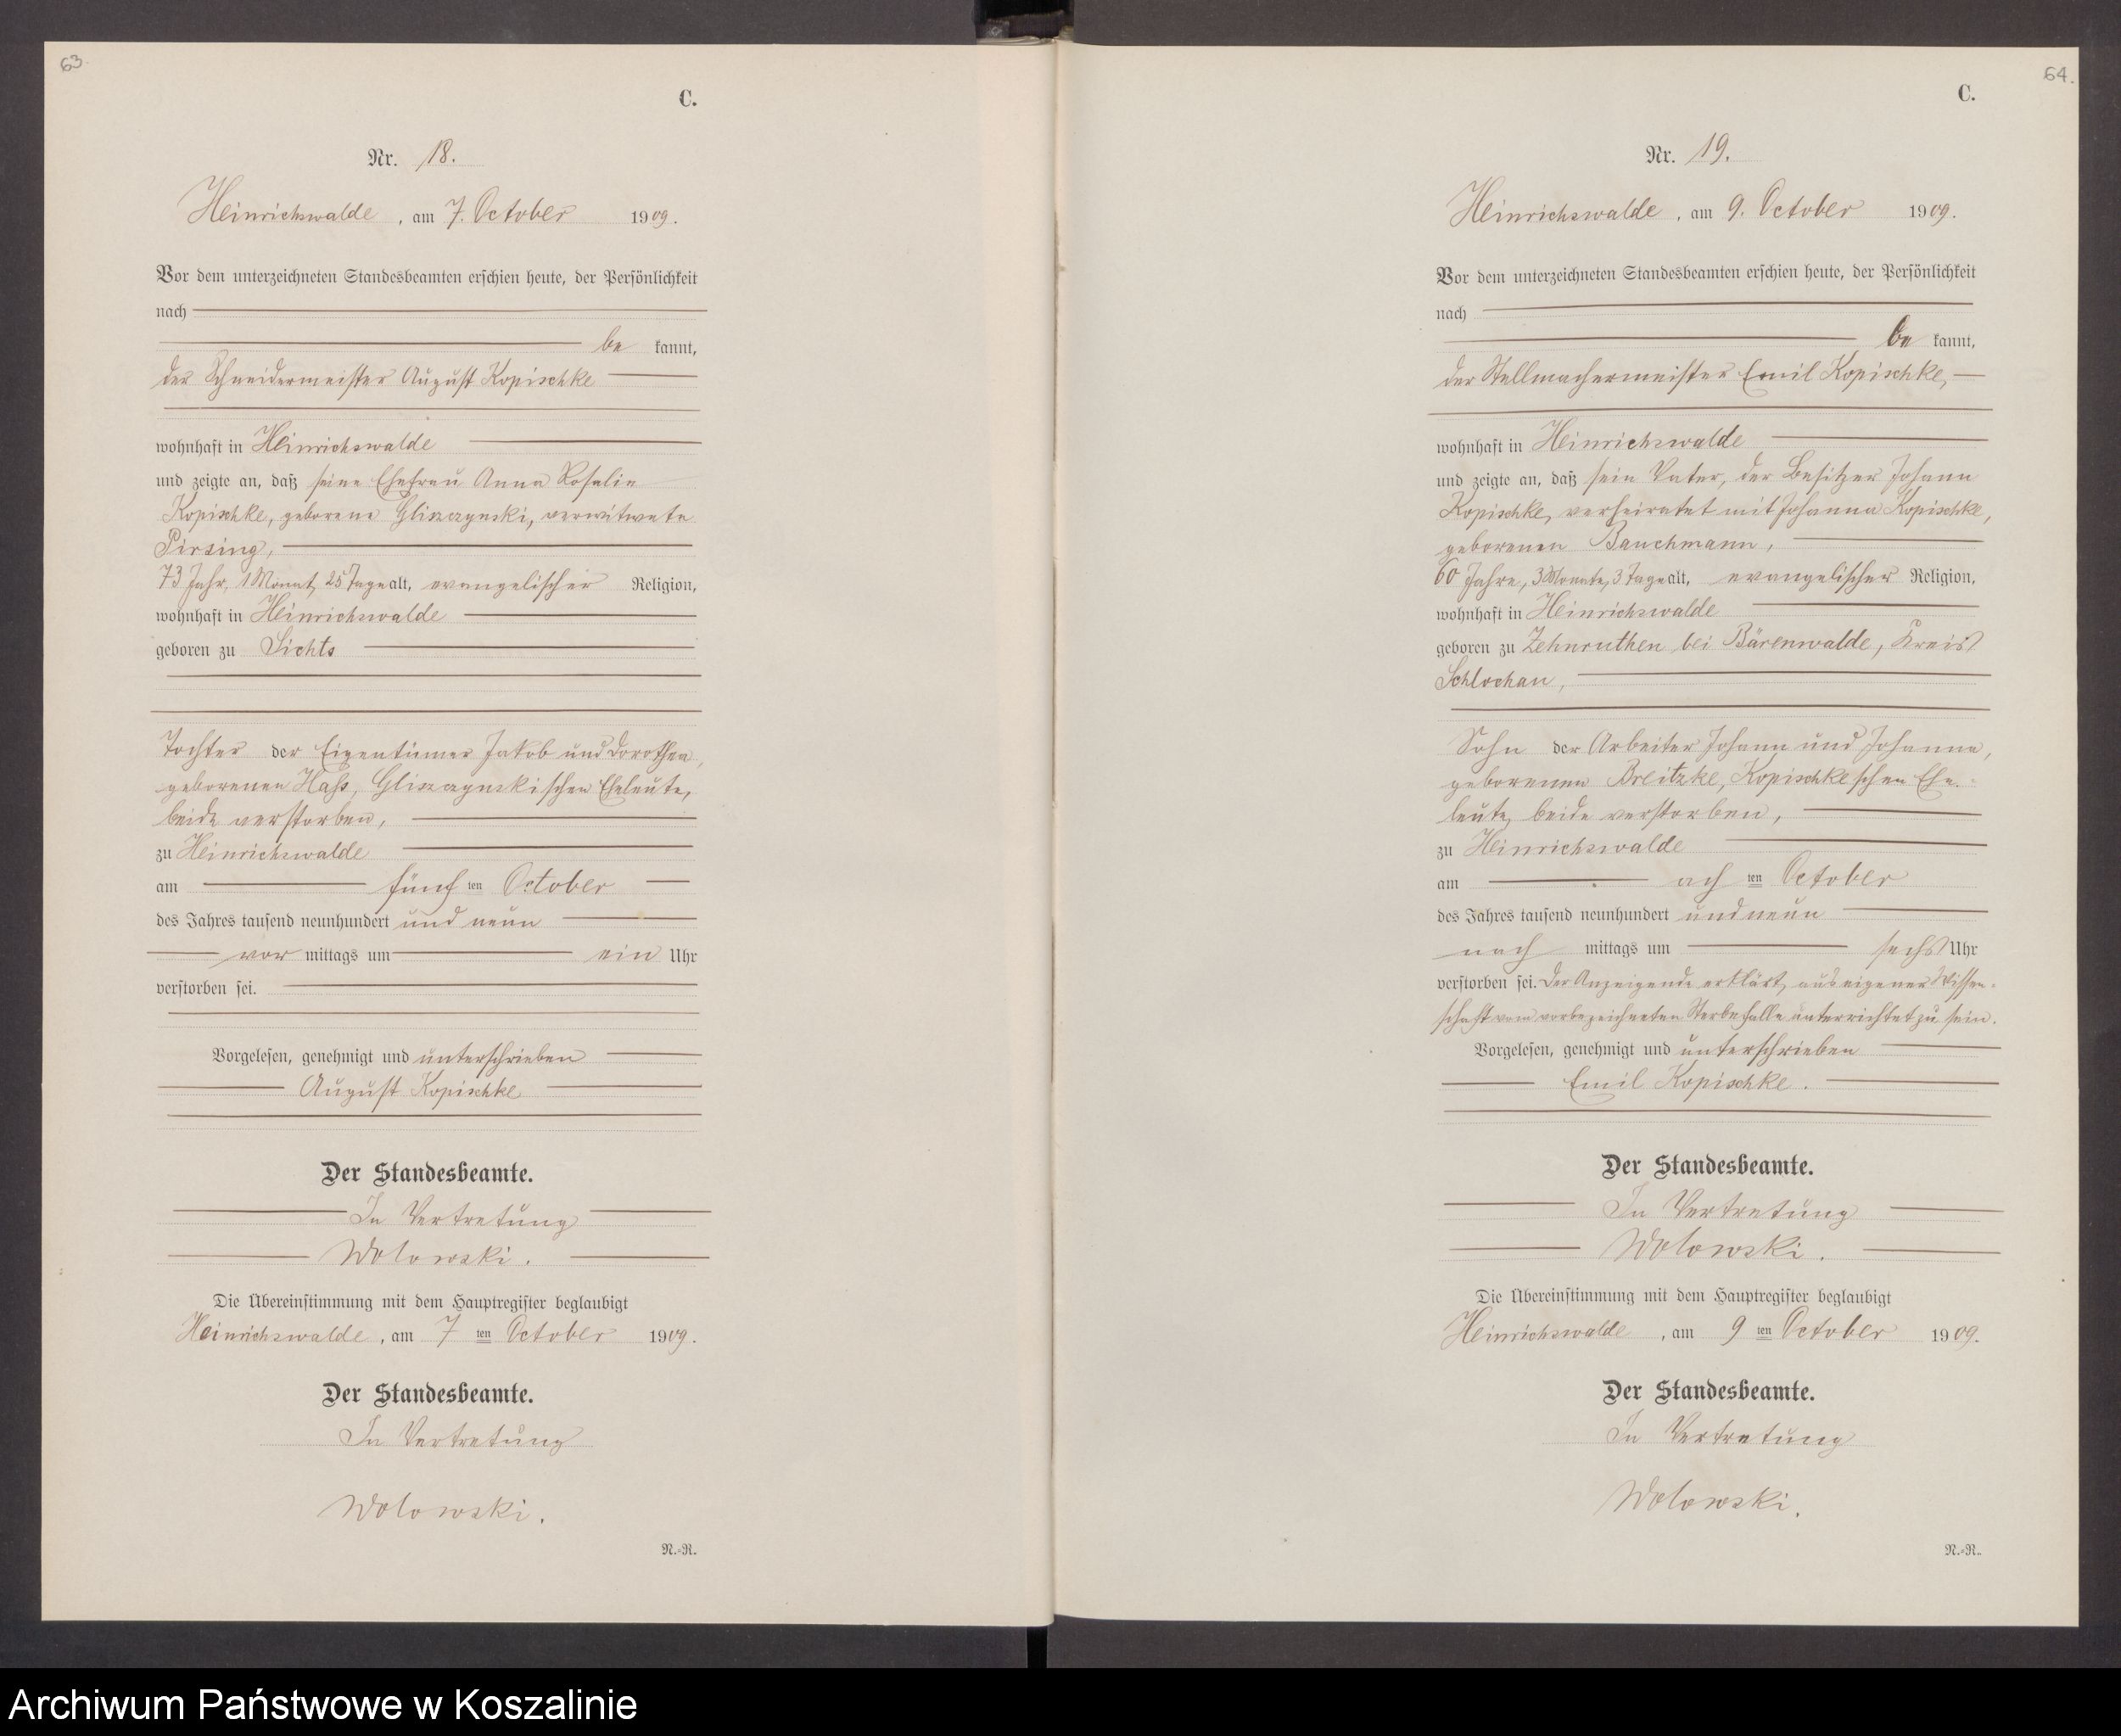 63.
C.
Nr. 18.
Heinrichswalde, am 7. October 1909.
Vor dem unterzeichneten Standesbeamten erschien heute, der Persönlichkeit
nach
be kannt,
der Schneidermeister August Kopischke
wohnhaft in Heinrichswalde
und zeigte an, daß seine Ehefrau Anna Rosalie
Kopischke, geborene Gliszczynski, verwitwete
Pirsing,
73 Jahr, 1 Monat, 25 Tage alt, evangelischer Religion,
wohnhaft in Heinrichswalde
geboren zu Lichts
Tochter der Eigentümer Jakob und Dorothea,
geborenen Hass, Gliszczynskischen Eheleute,
beide verstorben,
zu Heinrichswalde
am fünften October
des Jahres tausend neunhundert und neun
vor mittags um ein Uhr
verstorben sei.
Vorgelesen, genehmigt und unterschrieben
August Kopischke
Der Standesbeamte.
In Vertretung
Wolowski.
Die Übereinstimmung mit dem Hauptregister beglaubigt
Heinrichswalde, am 7 ten October 1909.
Der Standesbeamte.
In Vertretung
Wolowski.
N.=R.
64.
C.
Nr. 19.
Heinrichswalde, am 9. October 1909.
Vor dem unterzeichneten Standesbeamten erschien heute, der Persönlichkeit
nach
be kannt,
der Stellmachermeister Emil Kopischke,
wohnhaft in Heinrichswalde
und zeigte an, daß sein Vater, der Besitzer Johann
Kopischke, verheiratet mit Johanna Kopischke,
geborenen Bauchmann,
60 Jahre, 3 Monate, 3 Tage alt, evangelischer Religion,
wohnhaft in Heinrichswalde
geboren zu Zehnruthen bei Bärenwalde, Kreis
Schlochau,
Sohn der Arbeiter Johann und Johanna,
geborenen Breitzke, Kopischkeschen Ehe-
leute, beide verstorben,
zu Heinrichswalde
am ach ten October
des Jahres tausend neunhundert und neun
nach mittags um sechs Uhr
verstorben sei. Der Anzeigende erklärt, aus eigener Wissen-
schaft vom vorbezeichneten Sterbefalle unterrichtet zu sein.
Vorgelesen, genehmigt und unterschrieben
Emil Kopischke.
Der Standesbeamte.
In Vertretung
Wolowski.
Die Übereinstimmung mit dem Hauptregister beglaubigt
Heinrichswalde, am 9 ten October 1909.
Der Standesbeamte.
In Vertretung
Wolowski.
N.=R.
Archiwum Państwowe w Koszalinie